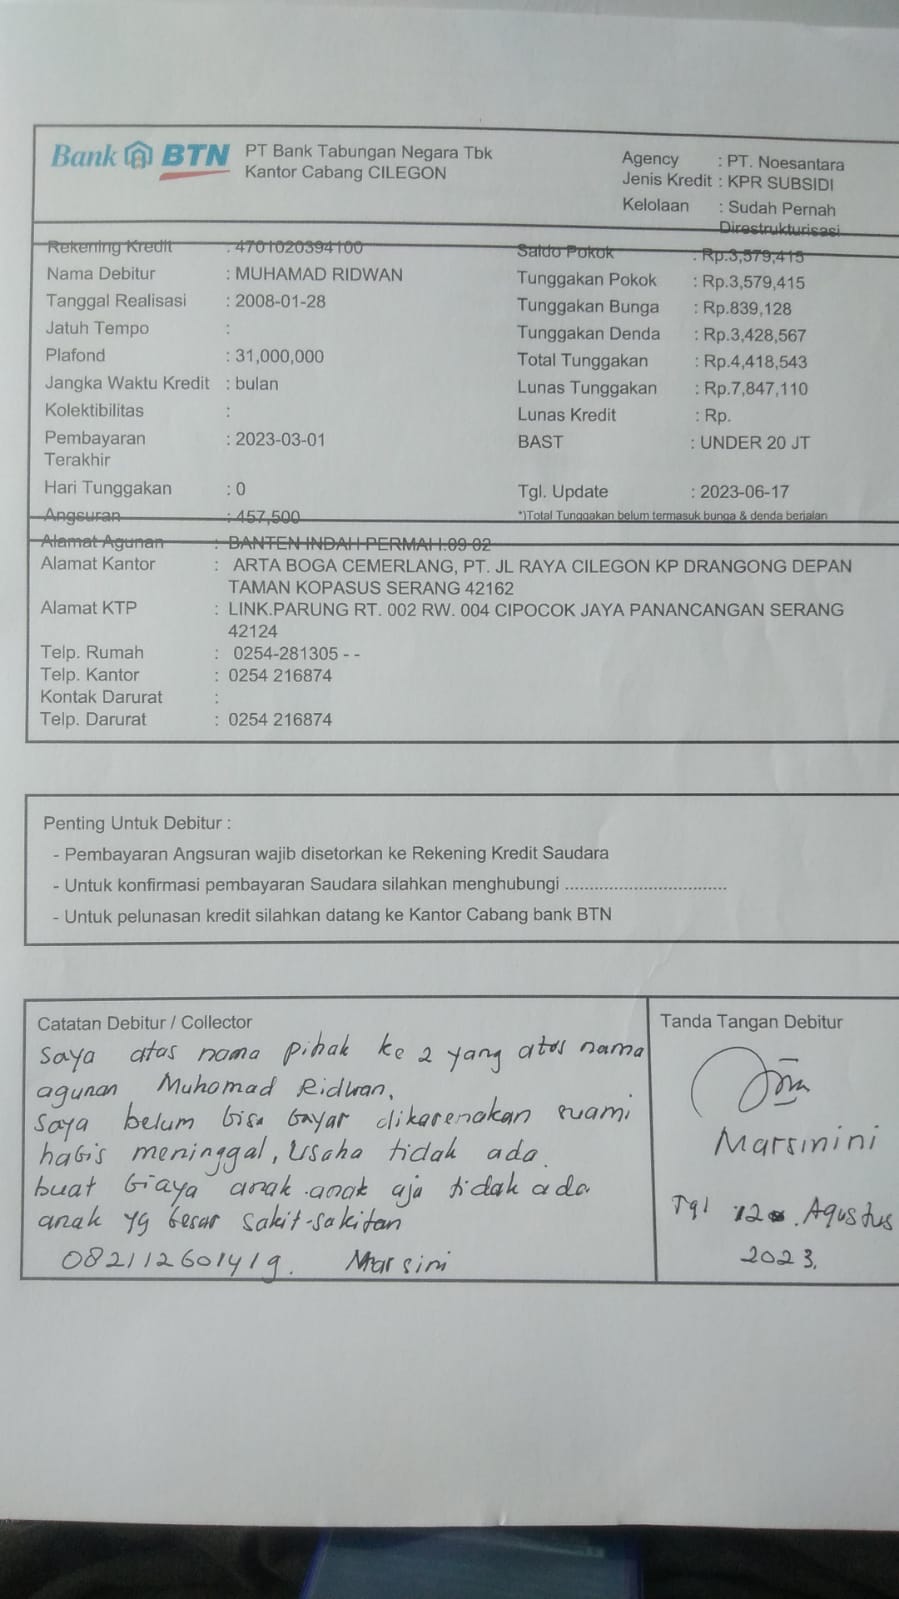 Bank BTN PT Bank Tabungan Negara Tbk
Kantor Cabang CILEGON
Agency : PT. Noesantara
Jenis Kredit : KPR SUBSIDI
Kelolaan : Sudah Pernah
Direstrukturisasi
Rekening Kredit : 4701020394100
Nama Debitur : MUHAMAD RIDWAN
Tanggal Realisasi : 2008-01-28
Jatuh Tempo :
Plafond : 31,000,000
Jangka Waktu Kredit : bulan
Kolektibilitas :
Pembayaran : 2023-03-01
Terakhir
Hari Tunggakan : 0
Angsuran : 457,500
Saldo Pokok : Rp.3,579,415
Tunggakan Pokok : Rp.3,579,415
Tunggakan Bunga : Rp.839,128
Tunggakan Denda : Rp.3,428,567
Total Tunggakan : Rp.4,418,543
Lunas Tunggakan : Rp.7,847,110
Lunas Kredit : Rp.
BAST : UNDER 20 JT
Tgl. Update : 2023-06-17
*)Total Tunggakan belum termasuk bunga & denda berjalan
Alamat Agunan : BANTEN INDAH PERMAI I.09 02
Alamat Kantor : ARTA BOGA CEMERLANG, PT. JL RAYA CILEGON KP DRANGONG DEPAN
TAMAN KOPASUS SERANG 42162
Alamat KTP : LINK.PARUNG RT. 002 RW. 004 CIPOCOK JAYA PANANCANGAN SERANG
42124
Telp. Rumah : 0254-281305 - -
Telp. Kantor : 0254 216874
Kontak Darurat :
Telp. Darurat : 0254 216874
Penting Untuk Debitur :
- Pembayaran Angsuran wajib disetorkan ke Rekening Kredit Saudara
- Untuk konfirmasi pembayaran Saudara silahkan menghubungi ..................................
- Untuk pelunasan kredit silahkan datang ke Kantor Cabang bank BTN
Catatan Debitur / Collector
Saya atas nama pihak ke 2 yang atas nama
agunan Muhamad Ridwan,
Saya belum bisa bayar dikarenakan suami
habis meninggal, Usaha tidak ada.
buat biaya anak-anak aja tidak ada
anak yg besar sakit-sakitan
082112601419. Marsini
Tanda Tangan Debitur
Marsinini
Tgl 12. Agustus
2023.